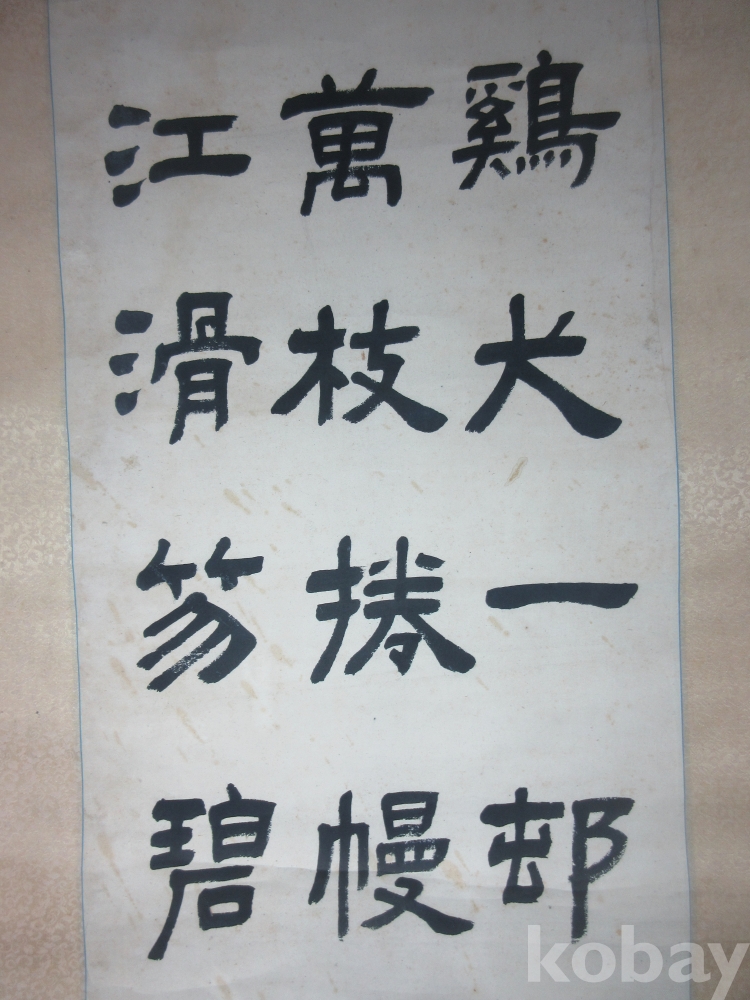 鷄犬一邨
萬枝捲幔
江滑笏碧
kobay